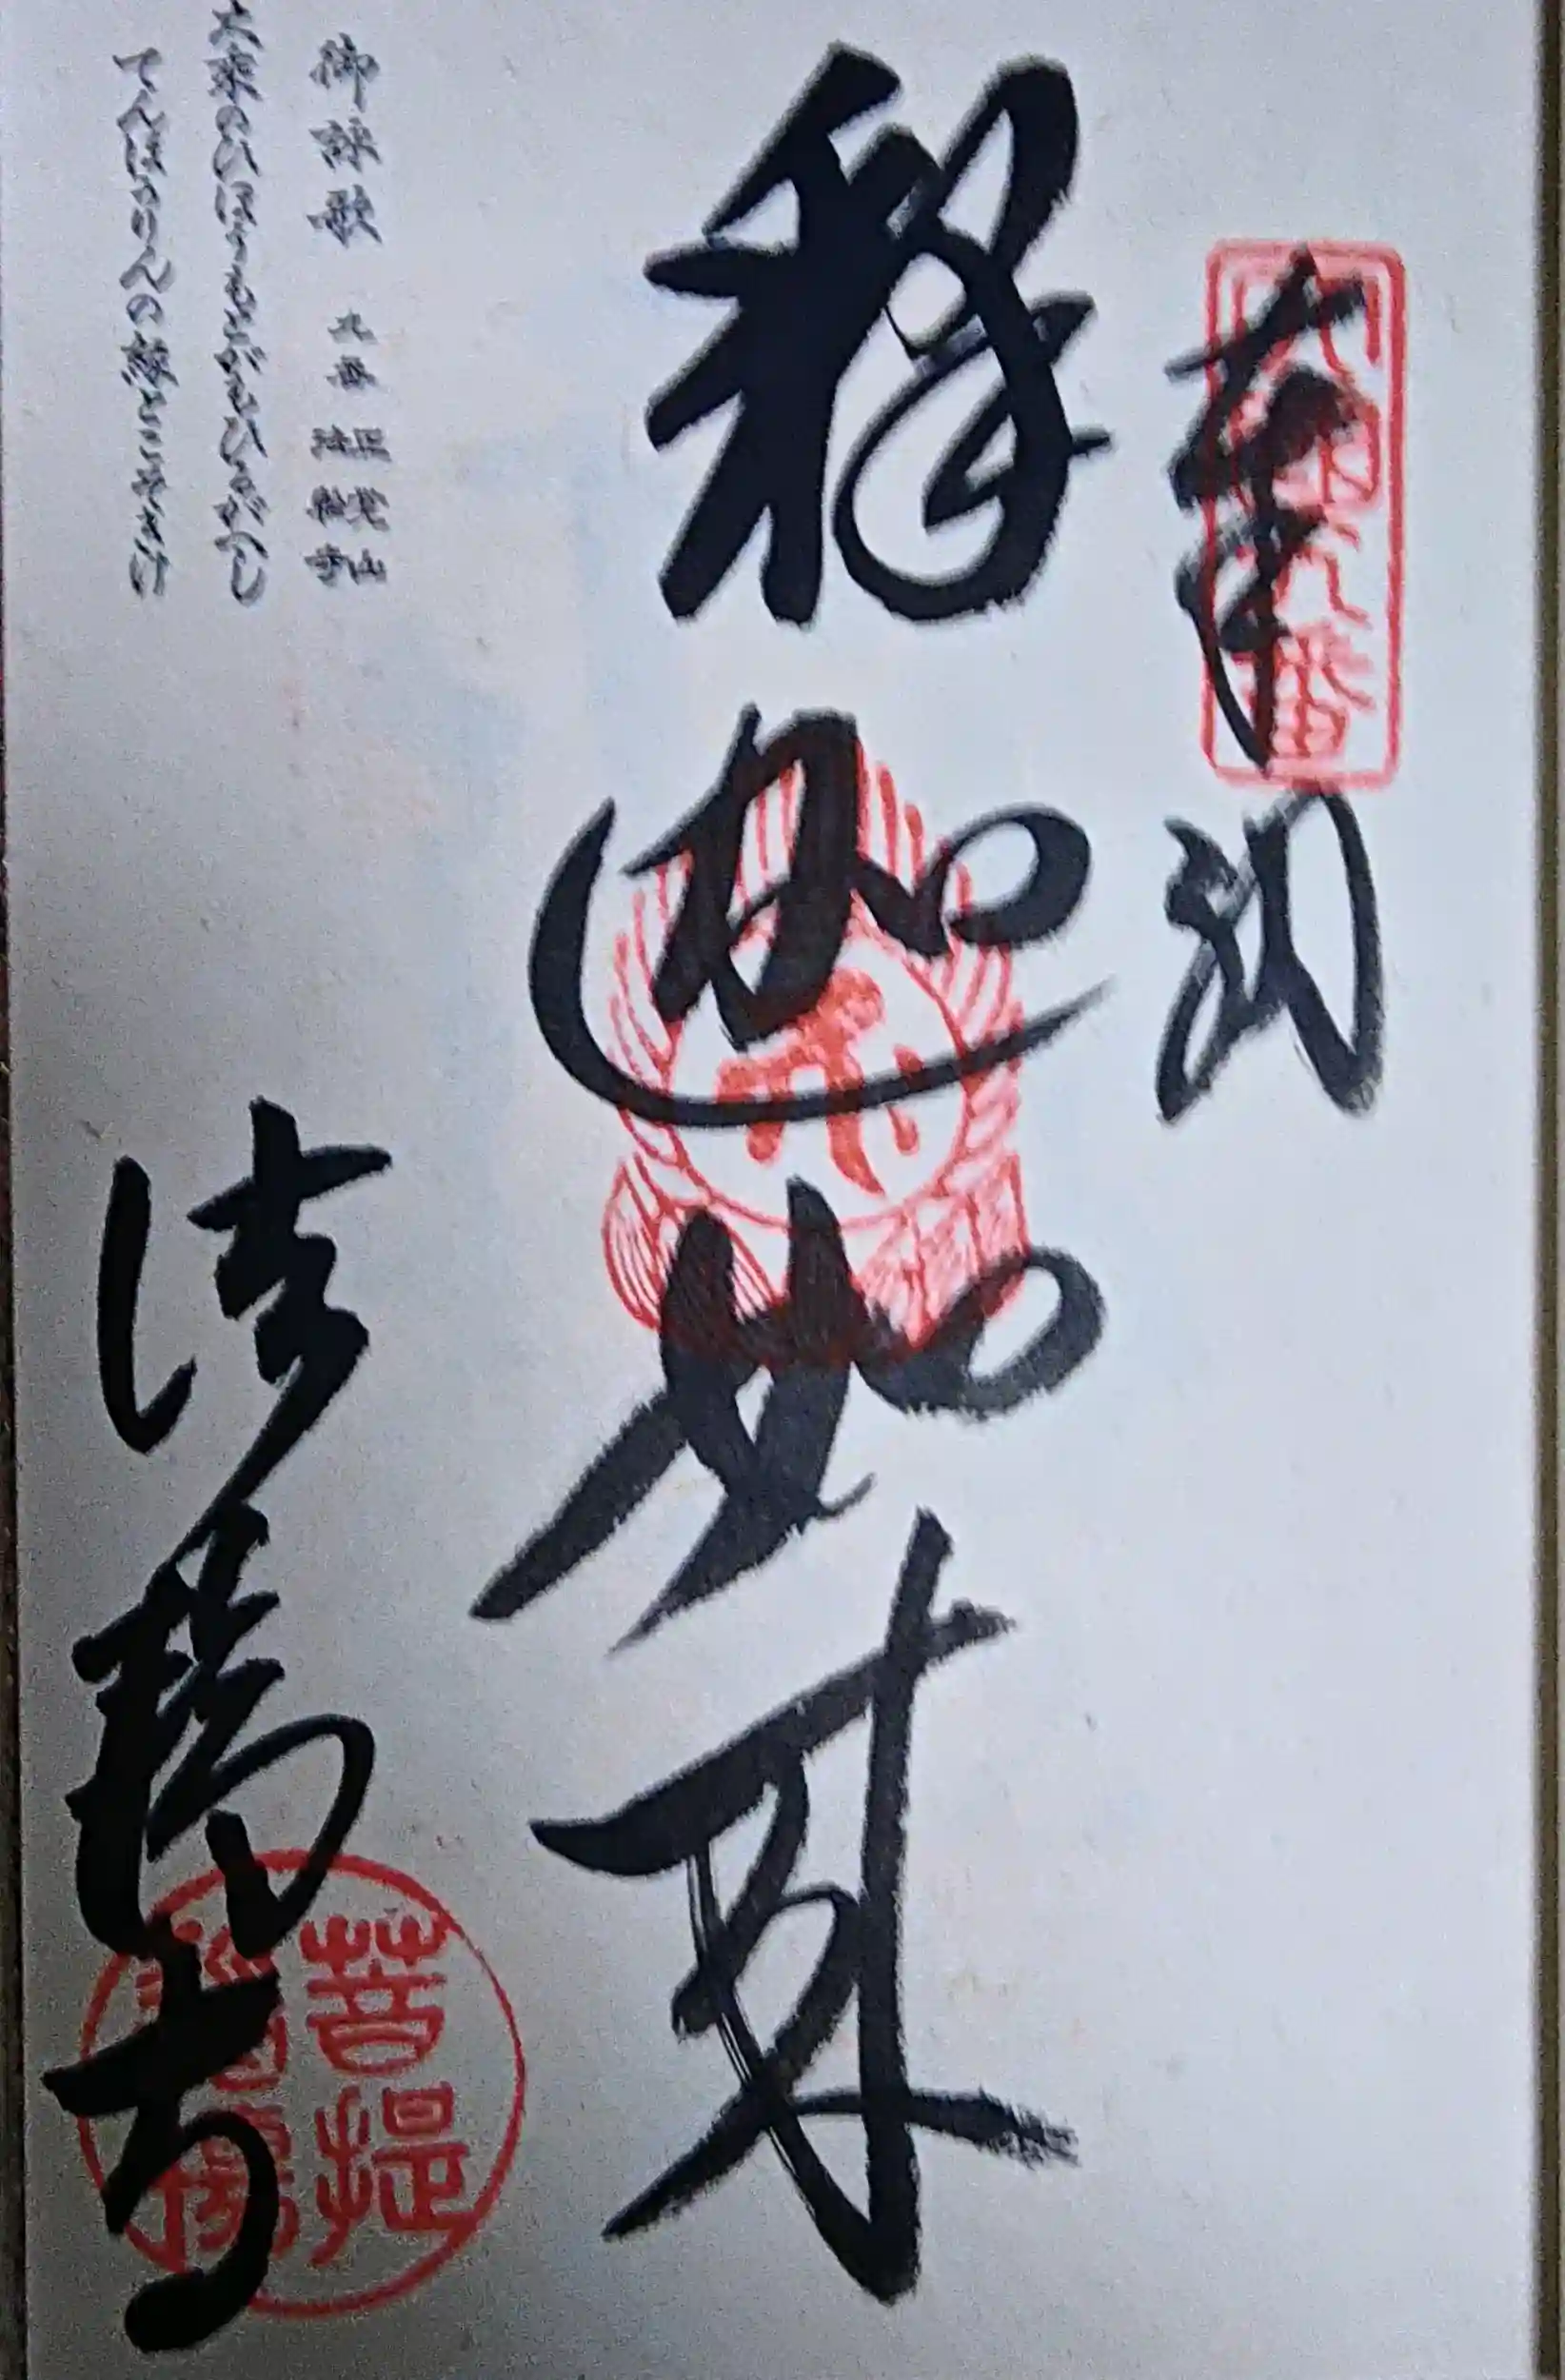 奉納
釈迦如来
法輪寺
菩提
道場
御詠歌 九番 正覚山
法輪寺
大乗のひほうもとがもひるがへし
てんぼうりんの縁とこそきけ